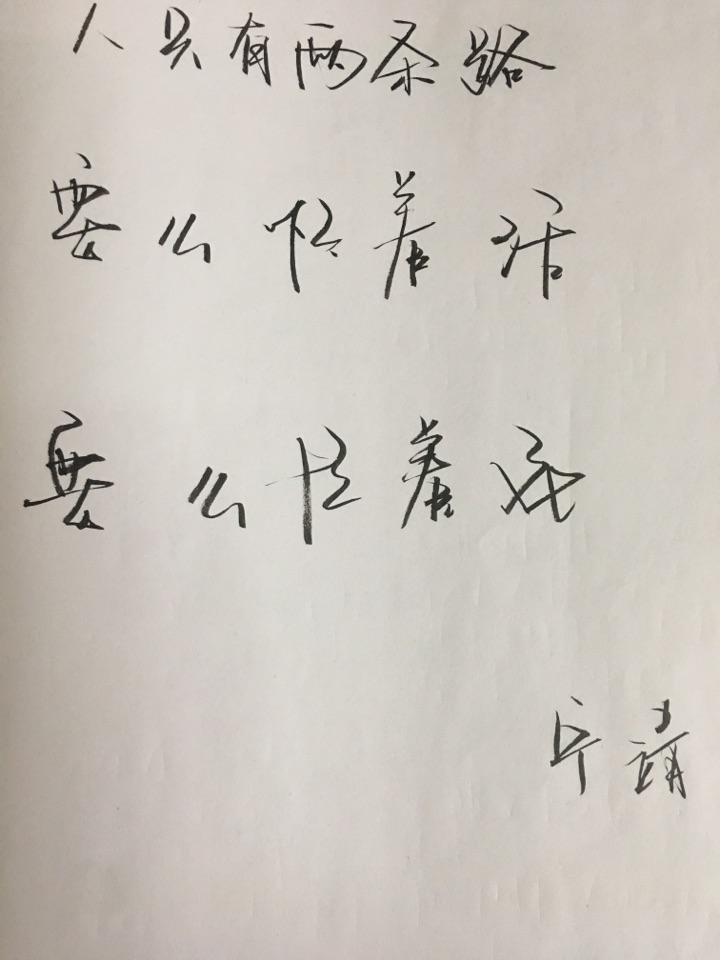 人只有两条路
要么忙着活
要么忙着死
宁靖